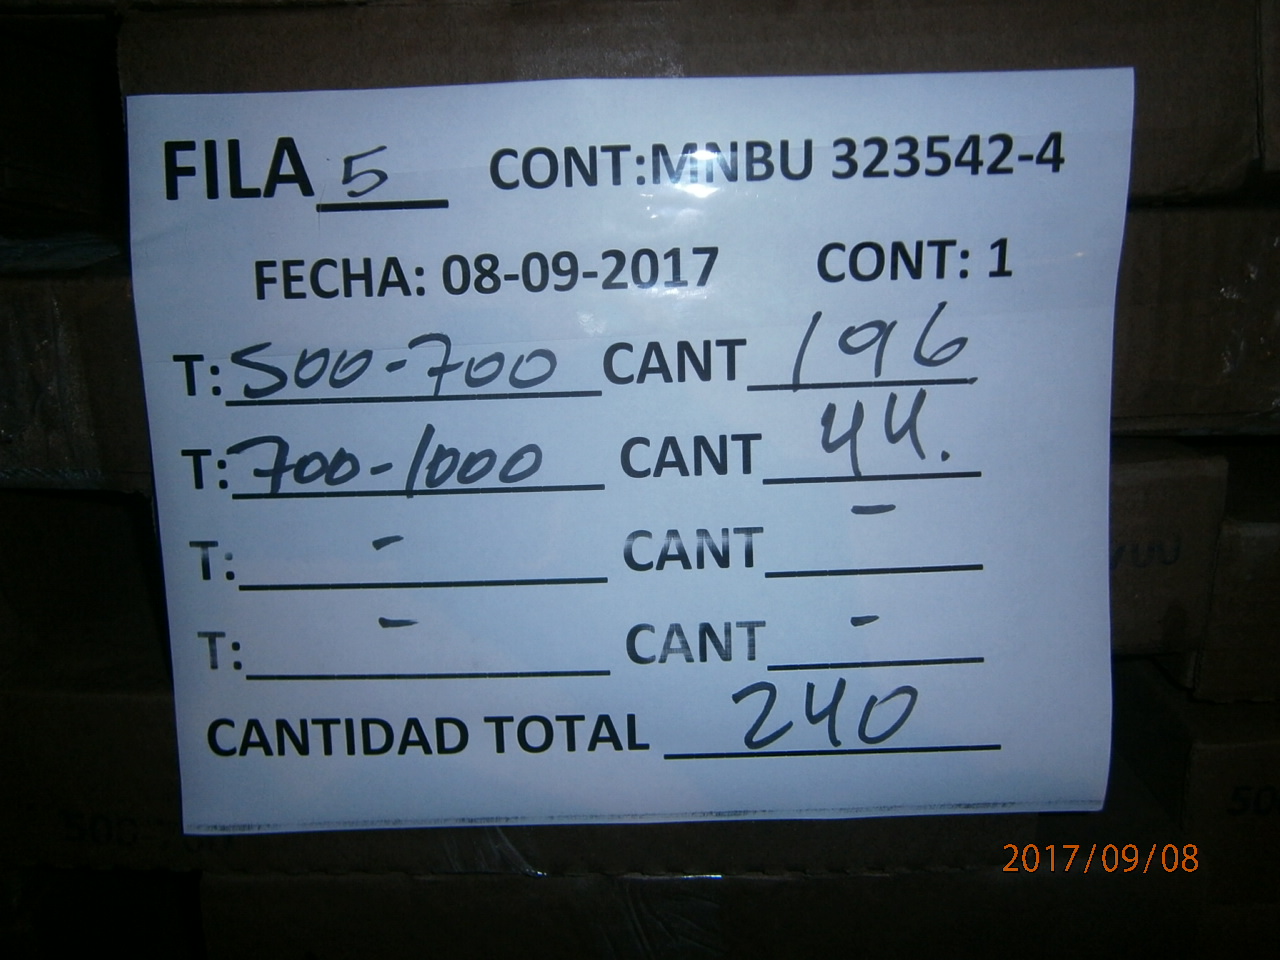 FILA 5 CONT:MNBU 323542-4
FECHA: 08-09-2017 CONT: 1
T: 500-700 CANT 196
T: 700-1000 CANT 44.
T: - CANT -
T: - CANT -
CANTIDAD TOTAL 240
500 700
2017/09/08